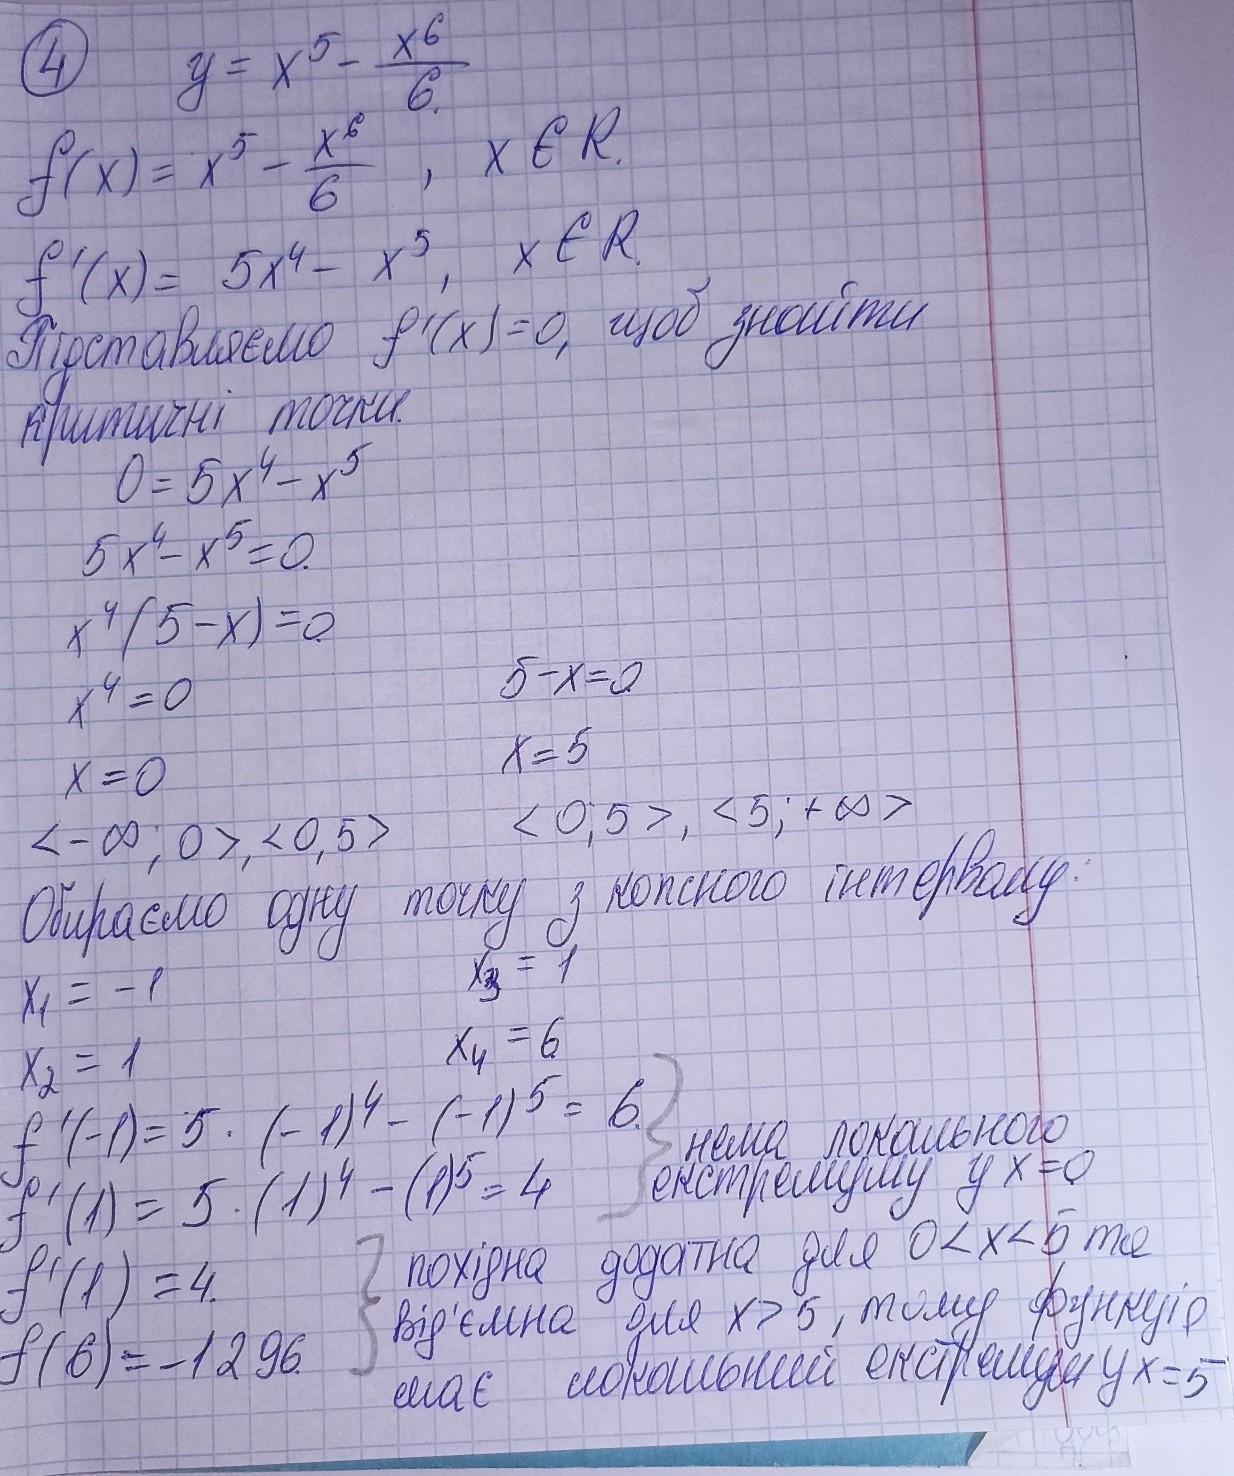 4 y = x⁵ - x⁶/6.
f(x) = x⁵ - x⁶/6, x ∈ R.
f'(x) = 5x⁴ - x⁵, x ∈ R.
Підставляємо f'(x)=0, щоб знайти
критичні точки.
0 = 5x⁴ - x⁵
5x⁴ - x⁵ = 0.
x⁴(5-x) = 0.
x⁴ = 0 5-x=0.
x = 0 x = 5
<-∞; 0>, <0,5> <0,5>, <5; +∞>
Обираємо одну точку з кожного інтервалу:
x₁ = -1 x₃ = 1
x₂ = 1 x₄ = 6.
f'(-1) = 5 · (-1)⁴ - (-1)⁵ = 6. } нема локального
f'(1) = 5 · (1)⁴ - (1)⁵ = 4 екстремуму у x=0
f'(1) = 4. } похідна додатна для 0<x<5 та
f(6) = -1296. від'ємна для x>5, тому функція
має локальний екстремум у x=5